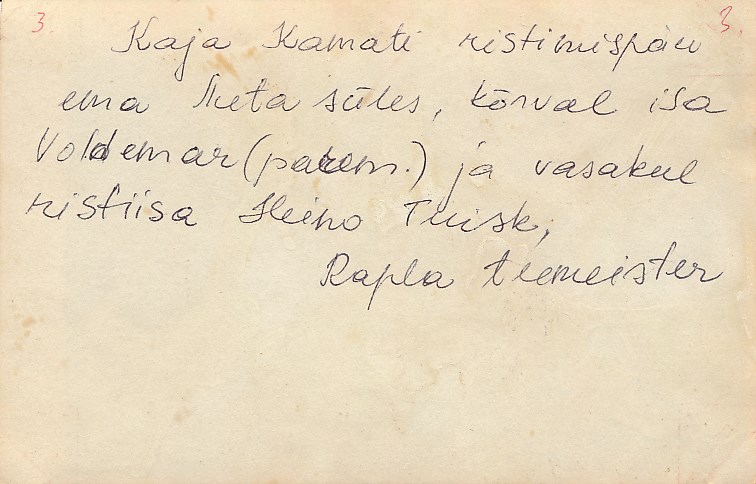 3. 3.
Kaja Kamati ristimispäev
ema Meta süles, kõrval isa
Voldemar (parem.) ja vasakul
ristiisa Heino Tuisk,
Rapla teemeister